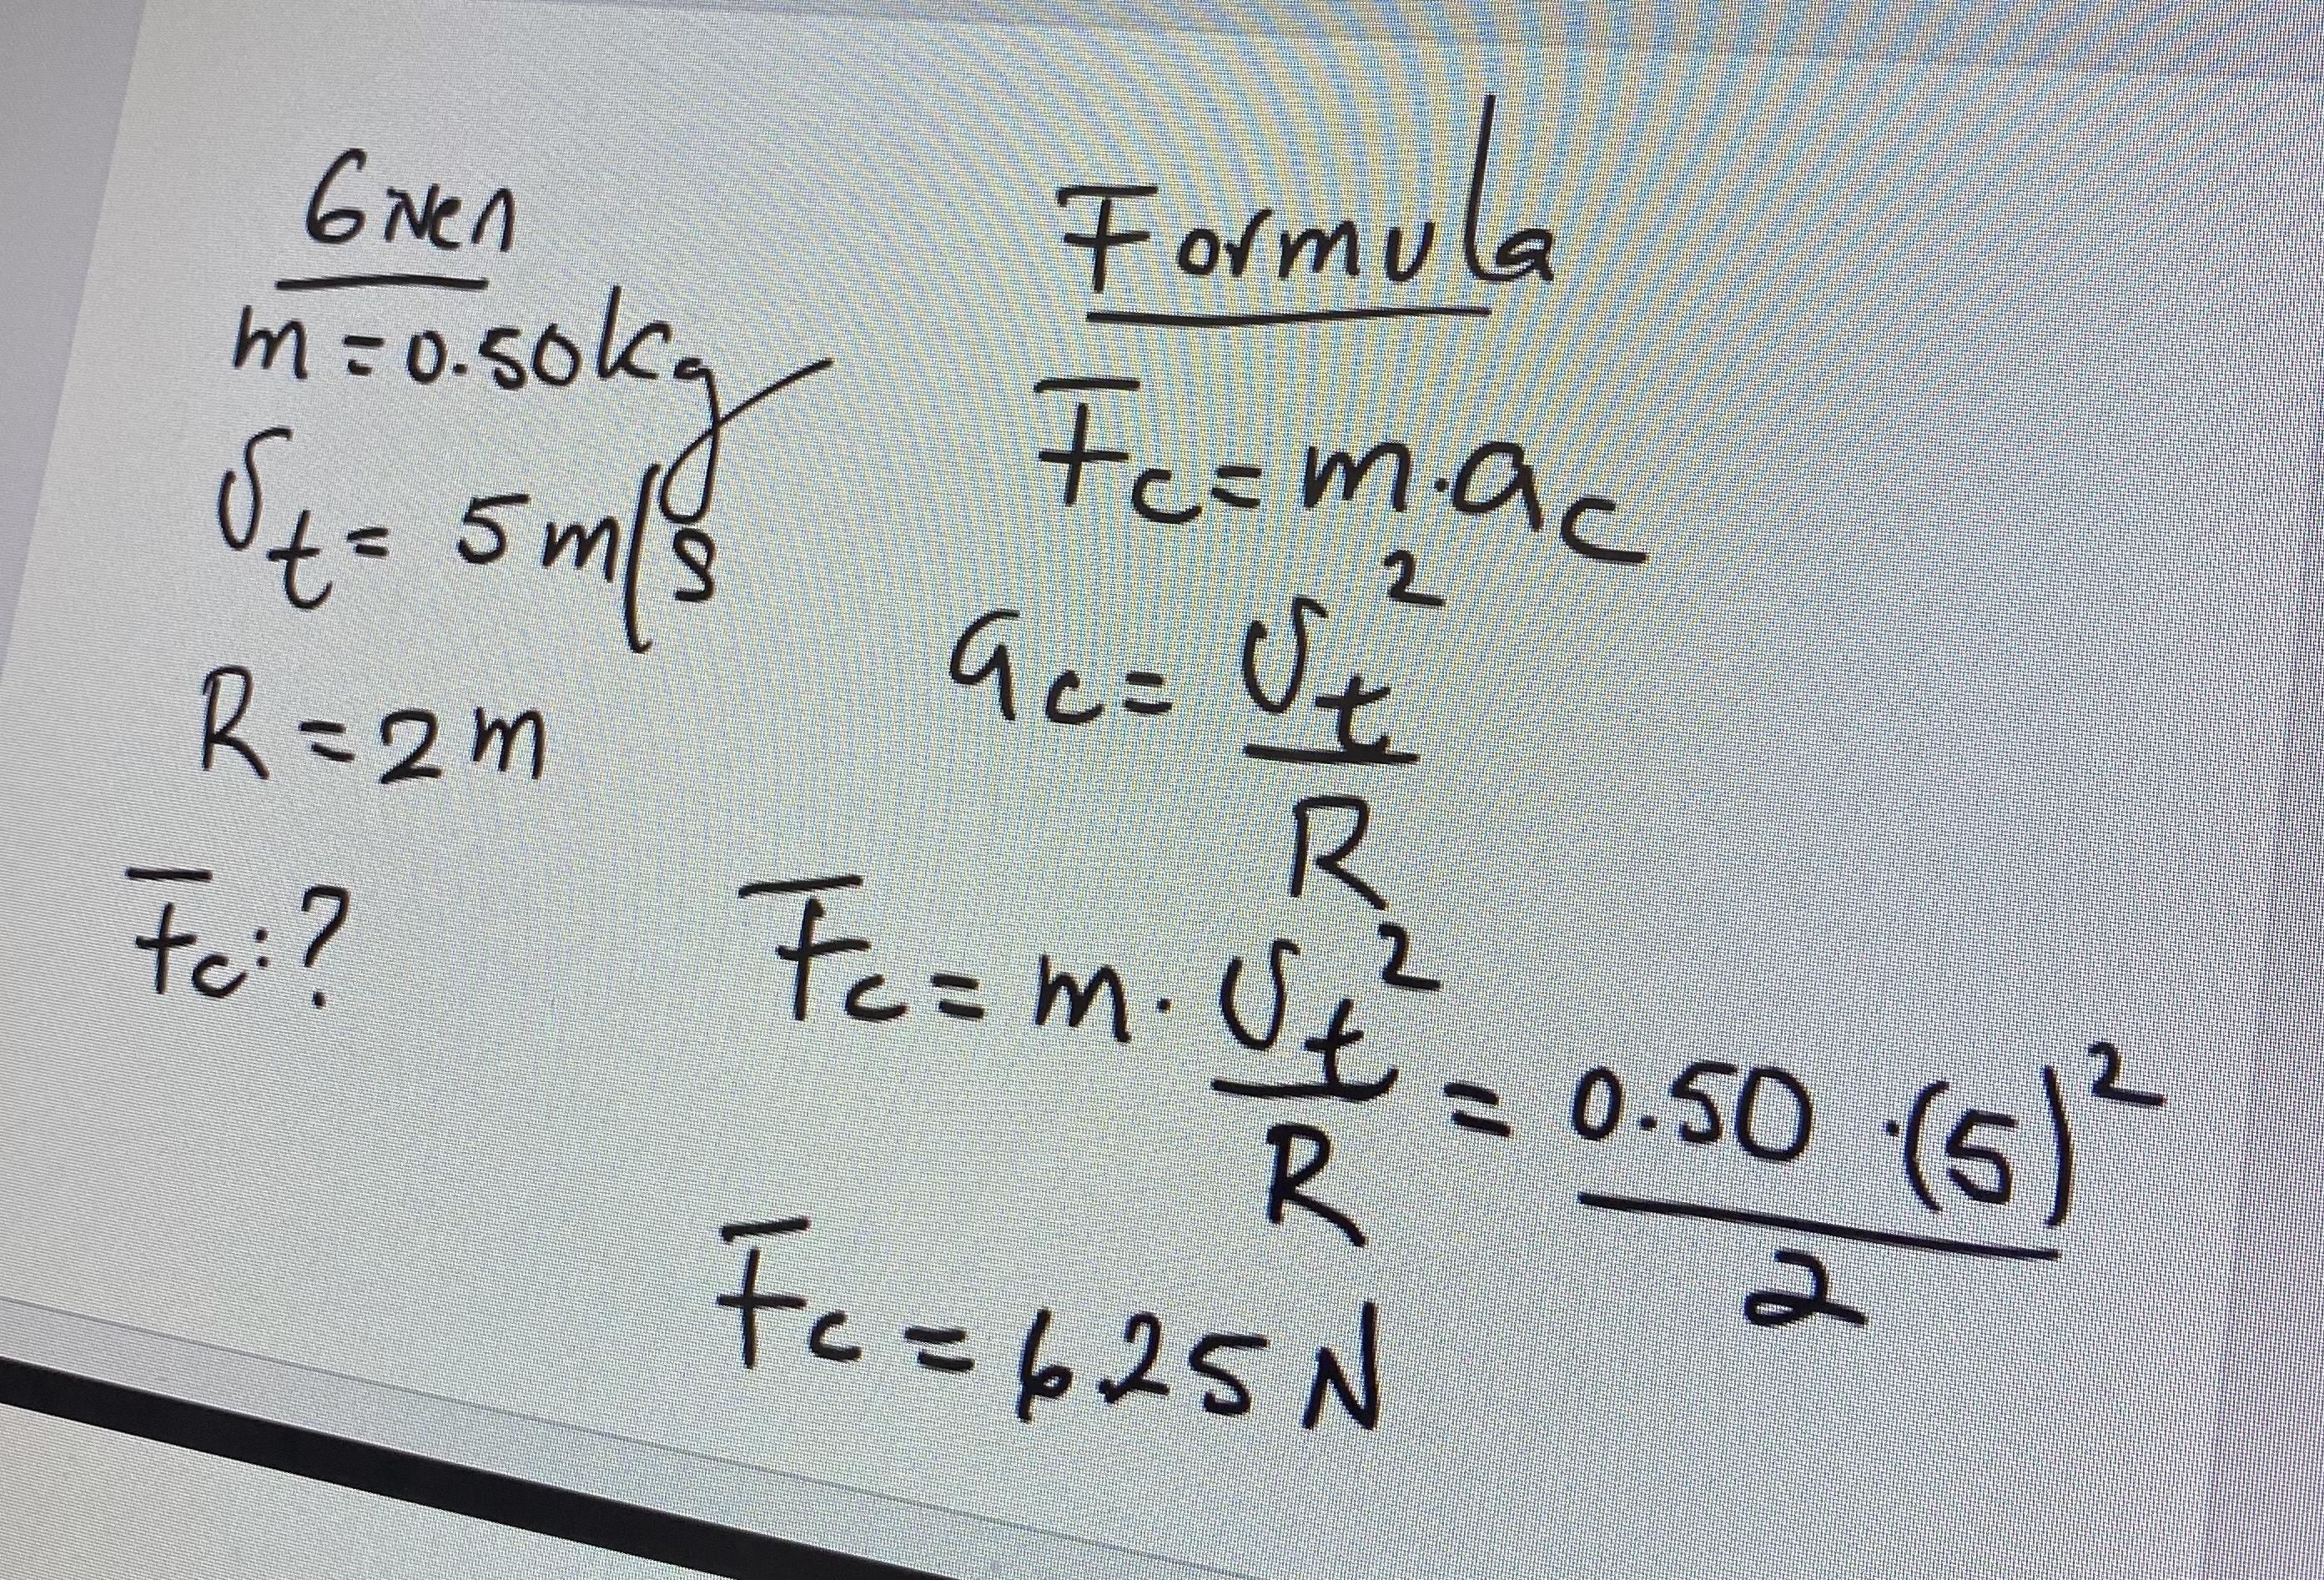 Given
m = 0.50kg
υt = 5 m/s
R = 2 m
Fc: ?
Formula
Fc = m.ac
ac = υt²/R
Fc = m . υt²/R = 0.50 .(5)²/2
Fc = 6.25 N